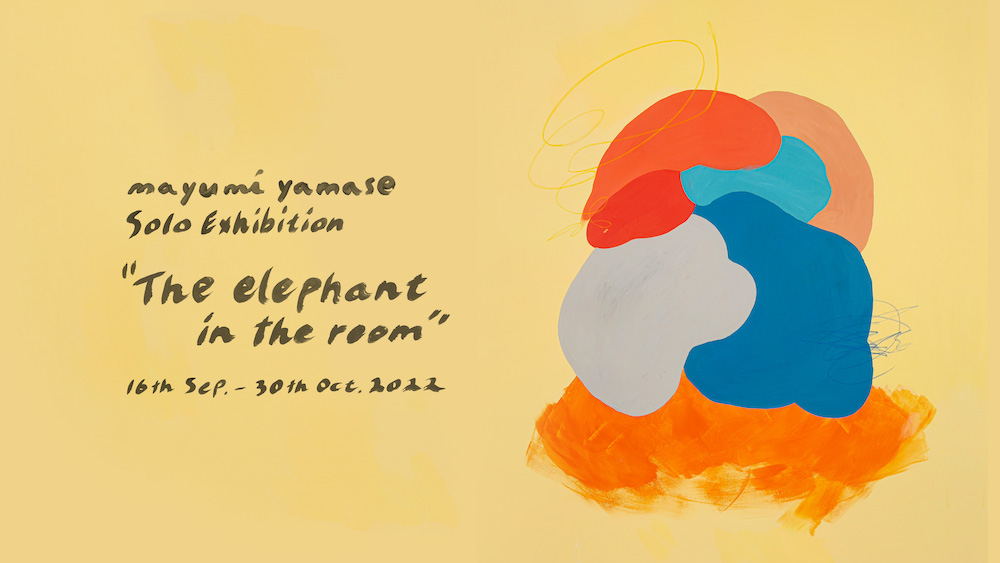 mayumi yamase
Solo Exhibition
"The elephant
in the room"
16th Sep. - 30th Oct. 2022